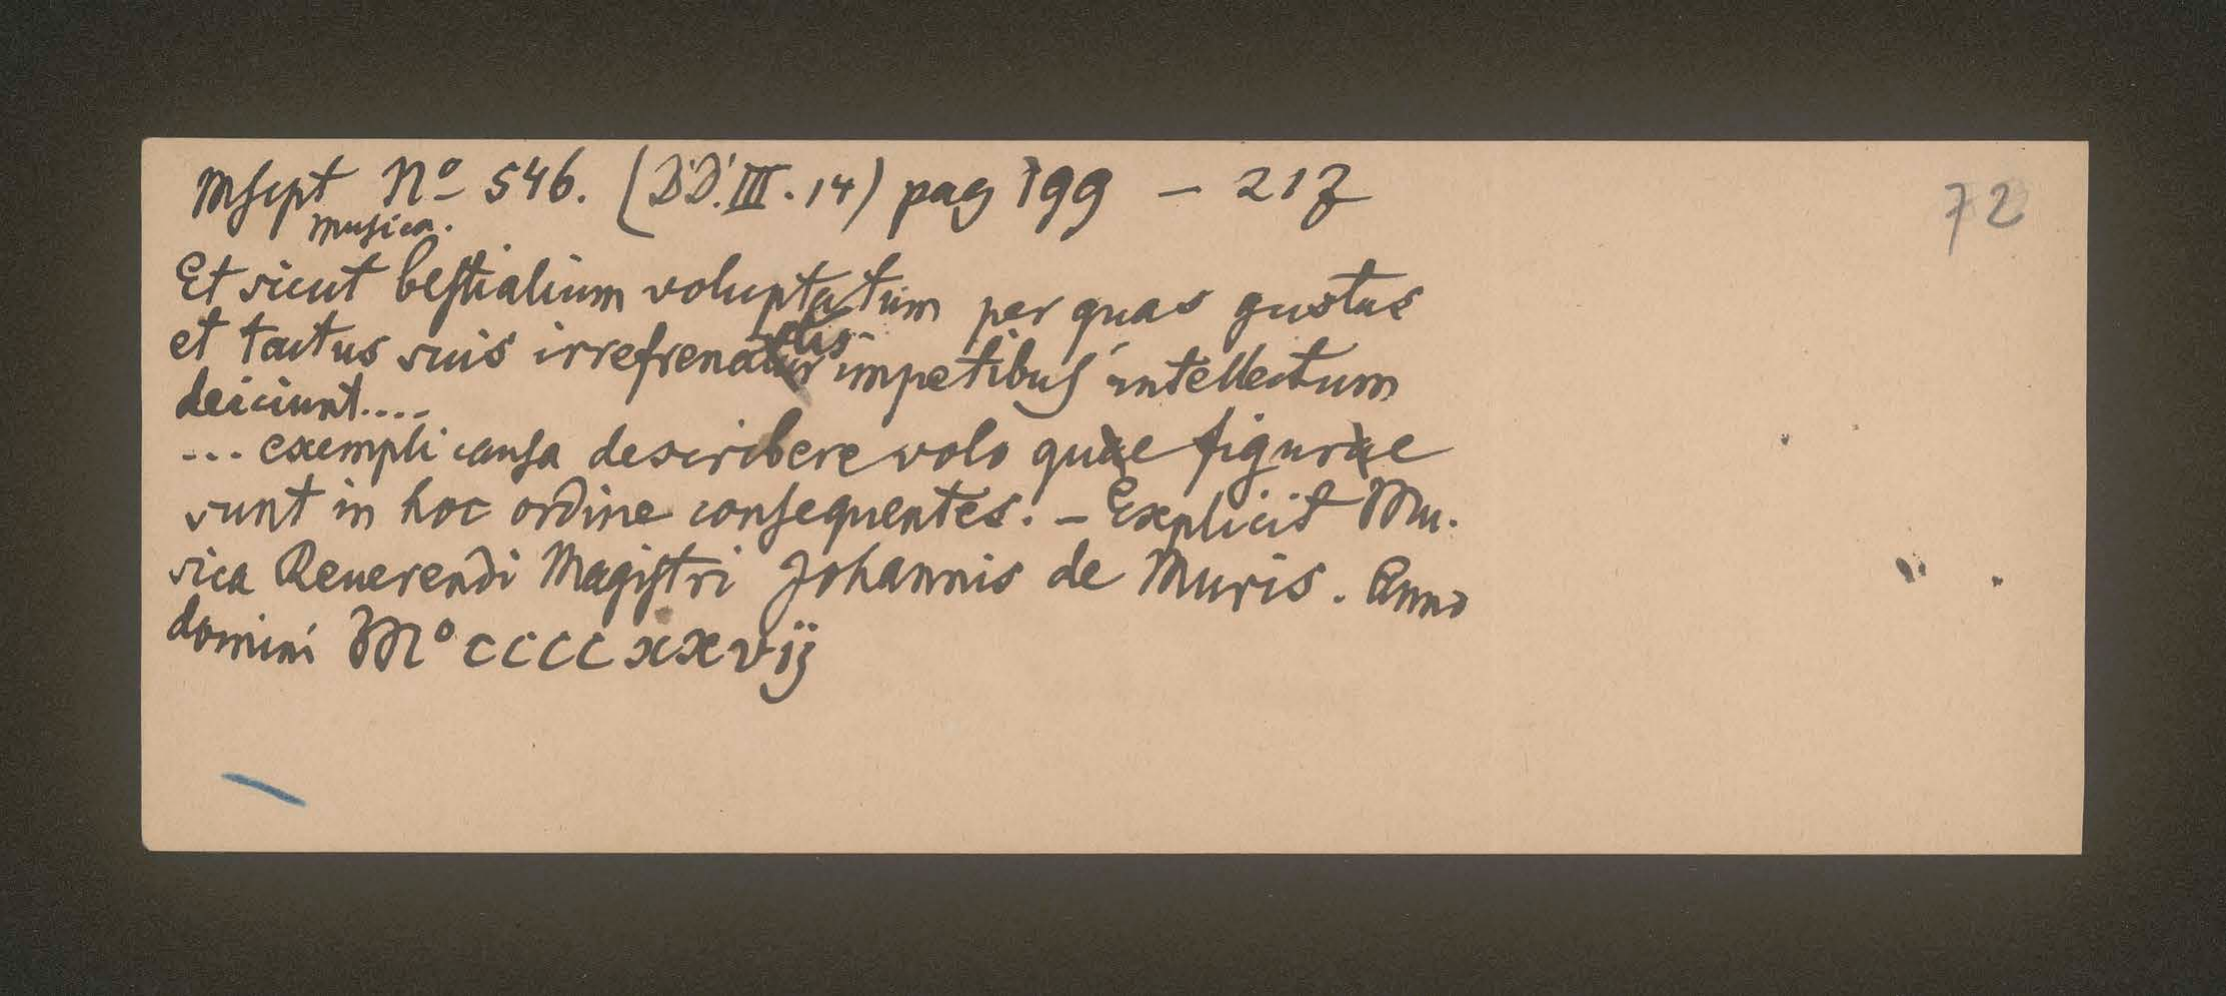 Mscpt No 546. (DD.III.14) pag 199 - 217
72
Musica.
Et sicut bestialium voluptatum per quas gustus
et tactus suis irrefrenatis impetibus intellectum
deiciunt....
... exempli causa describere volo que figure
sunt in hoc ordine consequentes. - Explicit Mu.
sica Reuerendi Magistri Johannis de Muris. Anno
domini Mº cccc xx vij